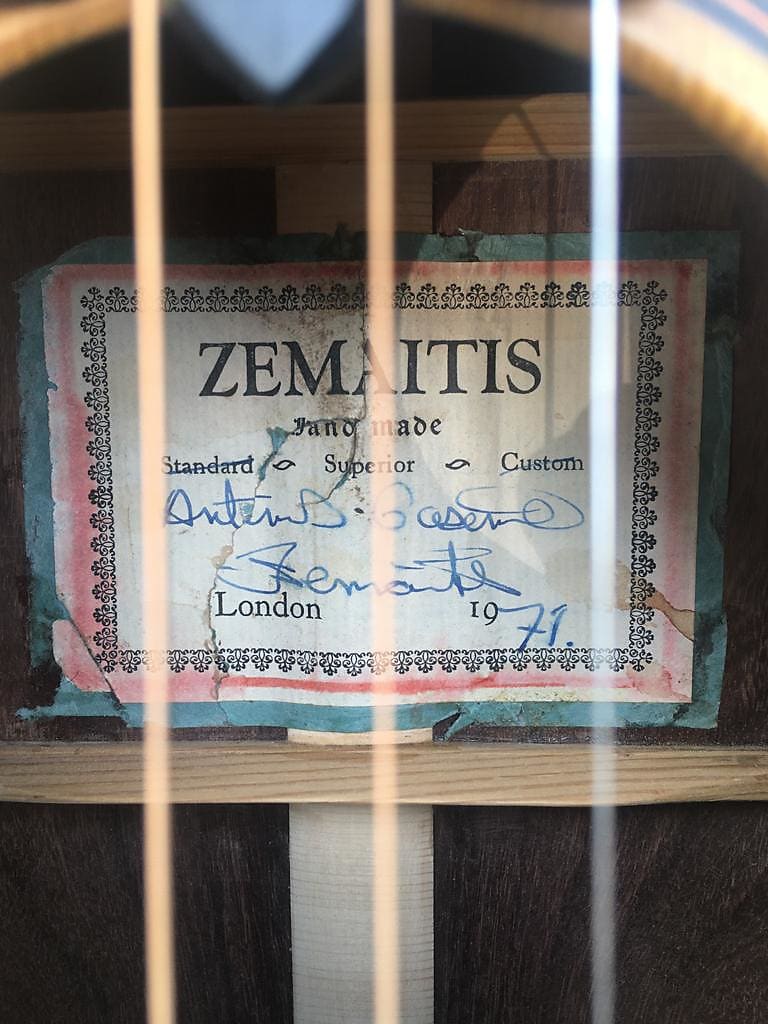 ZEMAITIS
Hand made
Standard Superior Custom
Zemaitis
London 1971.